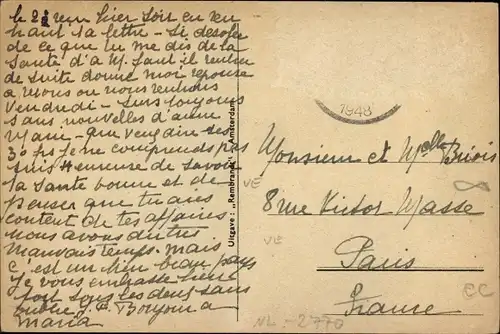 le 2 rem hier soir en ren
trant ta lettre - Si desolée
de ce que tu me dis de la
Santé d'a M. faut il rentrer
de suite donne moi reponse
a nous ou nous rentrons
Vendredi - suis toujours
sans nouvelles d'aune
Mam - que veux dire ses
30 ne comprends pas
suis Heureuse de savoir
ta Santé bonne et de
penser que tu as
content de tes affaires
nous avons autres
mauvais temps. mais
c'est un bien beau pays
Je vous embrasse bien
fort tous les deux sans
oublier Bonjour a
Maria
Uitgave: „Rembrandt" Amsterdam
1948
Monsieur et Melle Briois
8 rue Victor Masse
Paris
France
VE
VE
CC
NL-2770